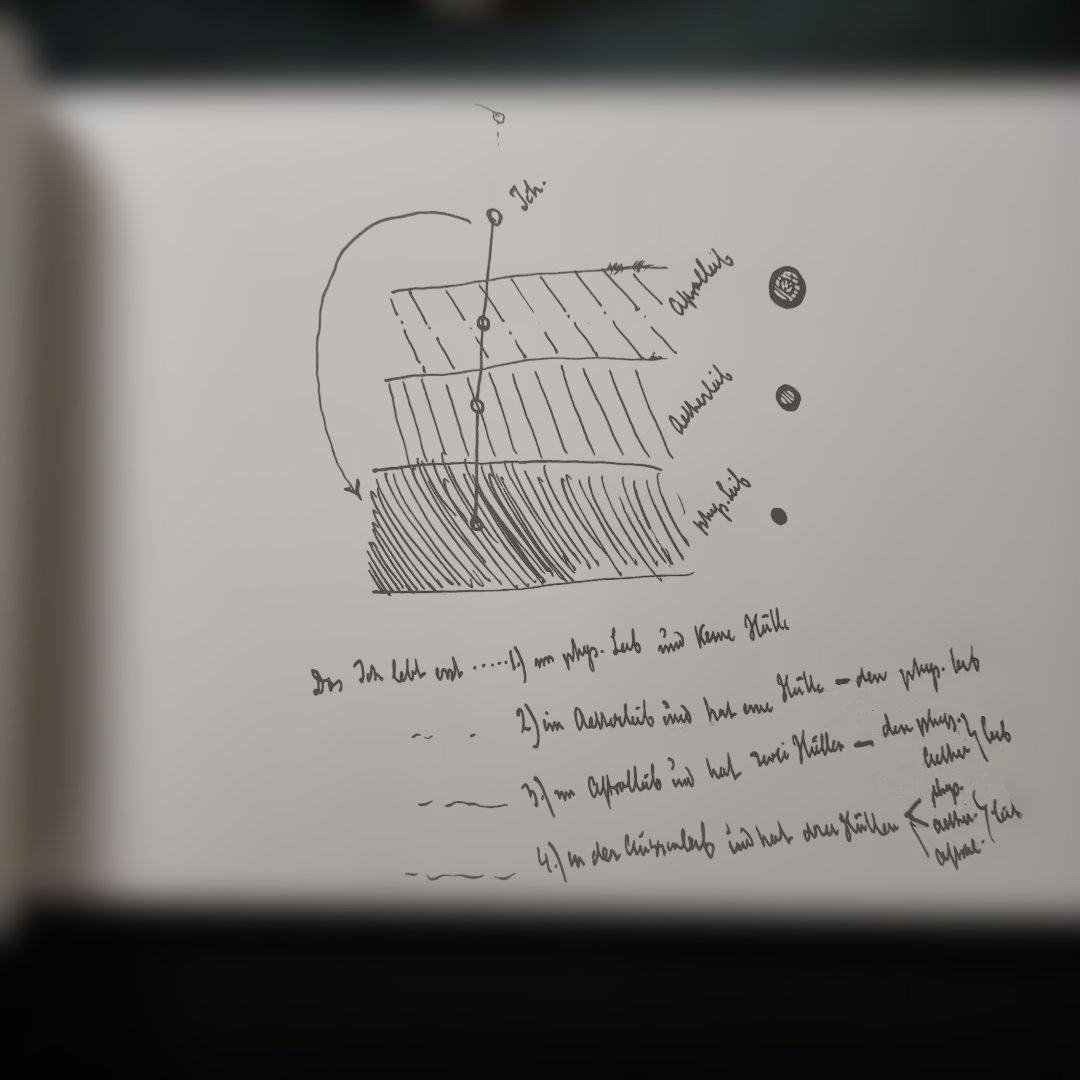 Ich.
Astralleib
Aetherleib
phys. Leib
Das Ich lebt erst ..... 1.) im phys. Leib und keine Hülle
2.) im Aetherleib und hat eine Hülle – den phys. Leib
3.) im Astralleib und hat zwei Hüllen – den phys. Leib
Aether
4.) in der und hat drei Hüllen < phys. Leib
aether.
astral.